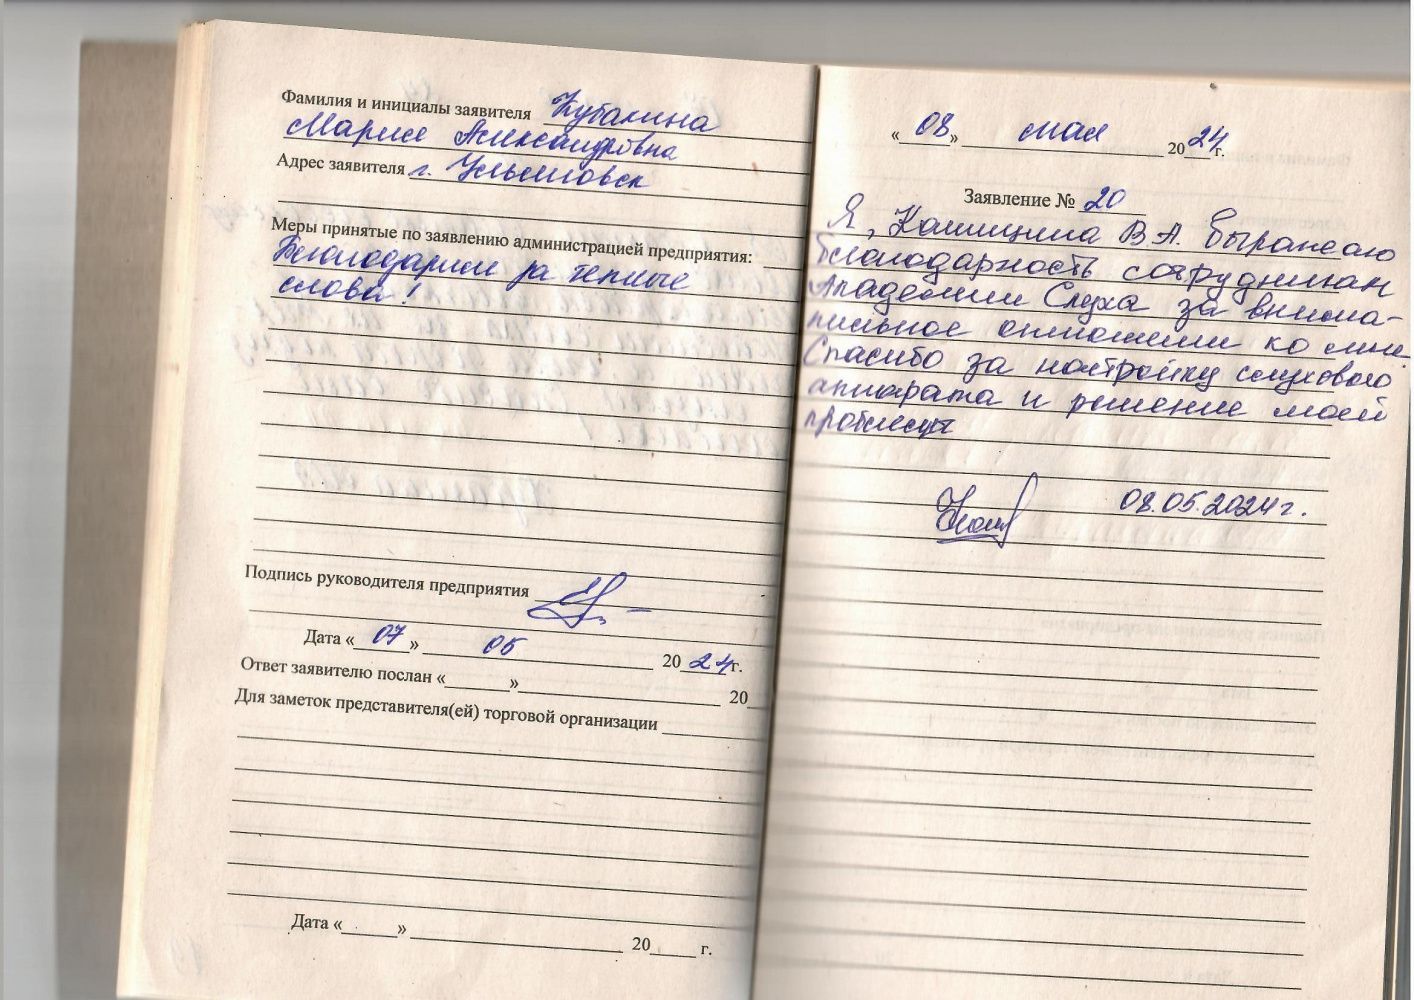 Фамилия и инициалы заявителя Кубакина
Мария Александровна
Адрес заявителя г. Ульяновск
Меры принятые по заявлению администрацией предприятия:
Благодарим за теплые
слова!
Подпись руководителя предприятия
Дата «07» 05 2024г.
Ответ заявителю послан «______»____________ 20__
Для заметок представителя(ей) торговой организации
Дата «______» ____________ 20____ г.
«08» мая 2024г.
Заявление № 20
Я, Камицина В.А. выражаю
благодарность сотрудникам
Академии Слуха за внима-
тельное отношение ко мне.
Спасибо за настройку слухового
аппарата и решение моей
проблемы
08.05.2024г.